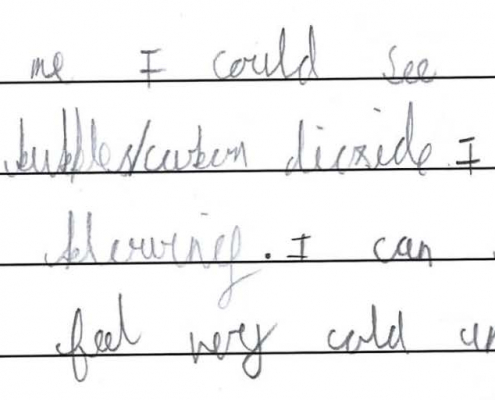 me I could see
bubbles/carbon dioxide. I
blowing. I can
feel very cold un